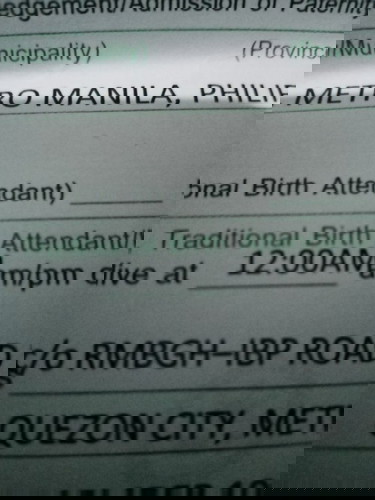 edgement/Admission of Paternity
(Province/Municipality)
METRO MANILA, PHILIP
onal Birth Attendant)
Attendant/ Traditional Birth
12:00AM am/pm alive at
c/o RMBGH-IBP ROAD
QUEZON CITY, MET